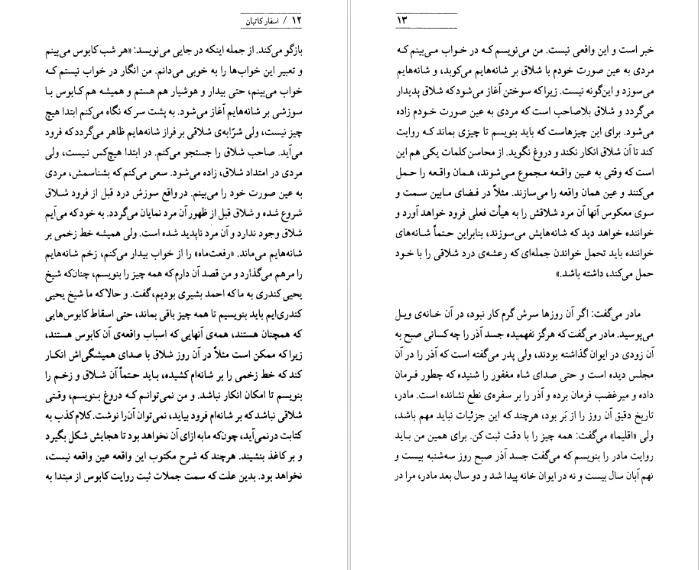 ۱۲ / اسفار کاتبان
بازگو می‌کند. از جمله اینکه در جایی می‌نویسد: «هر شب کابوس می‌بینم
و تعبیر این خواب‌ها را به خوبی می‌دانم. من انگار در خواب نیستم که
خواب می‌بینم، حتی بیدار و هوشیار هم هستم و همیشه هم کابوس با
سوزشی بر شانه‌هایم آغاز می‌شود. به پشت سر که نگاه می‌کنم ابتدا هیچ
چیز نیست، ولی شرّابه‌ی شلاقی بر فراز شانه‌هایم ظاهر می‌گردد که فرود
می‌آید. صاحب شلاق را جستجو می‌کنم. در ابتدا هیچ‌کس نیست، ولی
مردی در امتداد شلاق، زاده می‌شود. سعی می‌کنم که بشناسمش، مردی
به عین صورت خود را می‌بینم. در واقع سوزش درد قبل از فرود شلاق
شروع شده و شلاق قبل از ظهور آن مرد نمایان می‌گردد. به خود که می‌آیم
شلاق وجود ندارد و آن مرد ناپدید شده است. ولی همیشه خط زخمی بر
شانه‌هایم می‌ماند. «رفعت‌ماه» را از خواب بیدار می‌کنم، زخم شانه‌هایم
را مرهم می‌گذارد و من قصد آن دارم که همه چیز را بنویسم، چنان‌که شیخ
یحیی کندری به ما که احمد بشیری بودیم، گفت. و حالا که ما شیخ یحیی
کندری‌ایم باید بنویسیم تا همه چیز باقی بماند، حتی اسقاط کابوس‌هایی
که همچنان هستند، همه‌ی آنهایی که اسباب واقعه‌ی آن کابوس هستند،
زیرا که ممکن است مثلاً در آن روز شلاق با صدای همیشگی‌اش انکار
کند که خط زخمی را بر شانه‌ام کشیده، باید حتماً آن شلاق و زخم را
بنویسم تا امکان انکار نباشد. و من نمی‌توانم که دروغ بنویسم، وقتی
شلاقی نباشد که بر شانه‌ام فرود بیاید، نمی‌توان آن‌را نوشت. کلام کذب به
کتابت درنمی‌آید، چون‌که مابه ازای آن نخواهد بود تا هجایش شکل بگیرد
و بر کاغذ بنشیند. هرچند که شرح مکتوب این واقعه عین واقعه نیست،
نخواهد بود. بدین علت که سمت جملات ثبت روایت کابوس از مبتدا به
۱۳
خبر است و این واقعی نیست. من می‌نویسم که در خواب می‌بینم که
مردی به عین صورت خودم با شلاق بر شانه‌هایم می‌کوبد، و شانه‌هایم
می‌سوزد و این‌گونه نیست. زیرا که سوختن آغاز می‌شود که شلاق پدیدار
می‌گردد و شلاق بلاصاحب است که مردی به عین صورت خودم زاده
می‌شود. برای این چیزهاست که باید بنویسم تا چیزی بماند که روایت
کند تا آن شلاق انکار نکند و دروغ نگوید. از محاسن کلمات یکی هم این
است که وقتی به عین واقعه مجموع می‌شوند، همان واقعه را حمل
می‌کنند و عین همان واقعه را می‌سازند. مثلاً در فضای مابین سمت و
سوی معکوس آنها آن مرد شلاقش را به هیأت فعلی فرود خواهد آورد و
خواننده خواهد دید که شانه‌هایش می‌سوزند، بنابراین حتماً شانه‌های
خواننده باید تحمل خواندن جمله‌ای که رعشه‌ی درد شلاقی را با خود
حمل می‌کند، داشته باشد.»
مادر می‌گفت: اگر آن روزها سرش گرم کار نبود، در آن خانه‌ی ویل
می‌پوسید. مادر می‌گفت که هرگز نفهمیده جسد آذر را چه کسانی صبح به
آن زودی در ایوان گذاشته بودند، ولی پدر می‌گفته است که آذر را در آن
مجلس دیده است و حتی صدای شاه مغفور را شنیده که چطور فرمان
داده و میرغضب فرمان برده و آذر را بر سفره‌ی نطع نشانده است. مادر،
تاریخ دقیق آن روز را از بَر بود، هرچند که این جزئیات نباید مهم باشد،
ولی «اقلیما» می‌گفت: همه چیز را با دقت ثبت کن. برای همین من باید
روایت مادر را بنویسم که می‌گفت جسد آذر صبح روز سه‌شنبه بیست و
نهم آبان سال بیست و نه در ایوان خانه پیدا شد و دو سال بعد مادر، مرا در